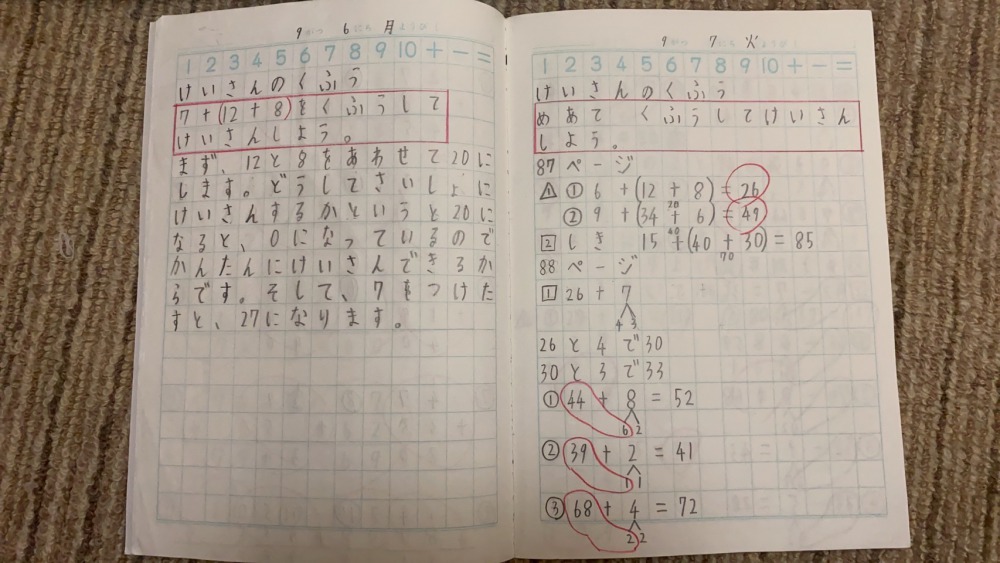 9がつ 6にち 月ようび
1 2 3 4 5 6 7 8 9 10 + - =
けいさんのくふう
7+(12+8)をくふうして
けいさんしよう。
まず、12と8をあわせて20に
します。どうしてさいしょに
けいさんするかというと20に
なると、0になっているので
かんたんにけいさんできるか
らです。そして、7をつけた
すと、27になります。
9がつ 7にち 火ようび
1 2 3 4 5 6 7 8 9 10 + - =
けいさんのくふう
めあて くふうしてけいさん
しよう。
87ページ
1 ① 6+(12+8)=26
20
② 9+(34+6)=49
40
2 しき 15+(40+30)=85
70
88ページ
1 26+7
4 3
26と4で30
30と3で33
① 44+8=52
6 2
② 39+2=41
1 1
③ 68+4=72
2 2